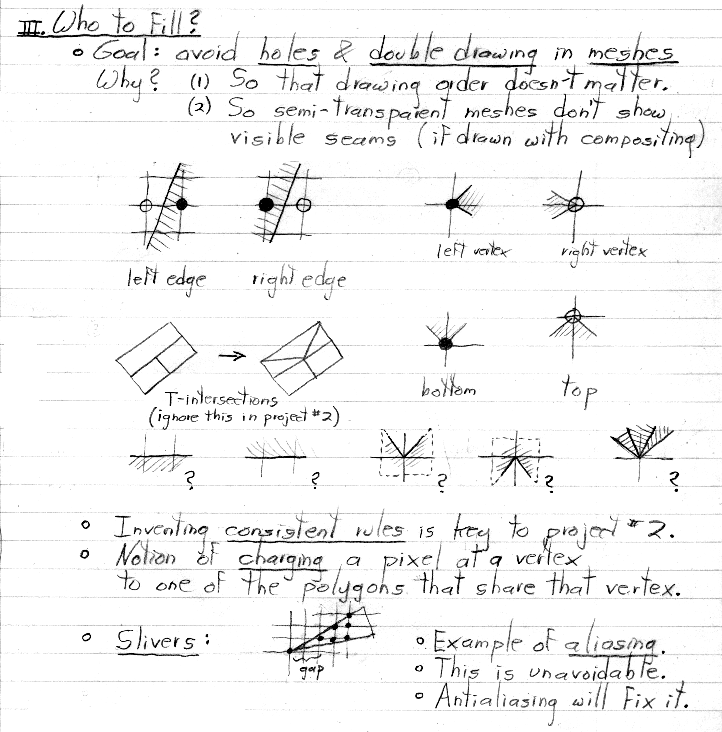 III. Who to Fill?
○ Goal: avoid holes & double drawing in meshes
Why? (1) So that drawing order doesn't matter.
(2) So semi-transparent meshes don't show
visible seams (if drawn with compositing)
left vertex right vertex
left edge right edge
bottom top
T-intersections
(ignore this in project #2)
? ? ? ? ?
○ Inventing consistent rules is key to project #2.
○ Notion of charging a pixel at a vertex
to one of the polygons that share that vertex.
○ Slivers: ○ Example of aliasing.
gap ○ This is unavoidable.
○ Antialiasing will fix it.